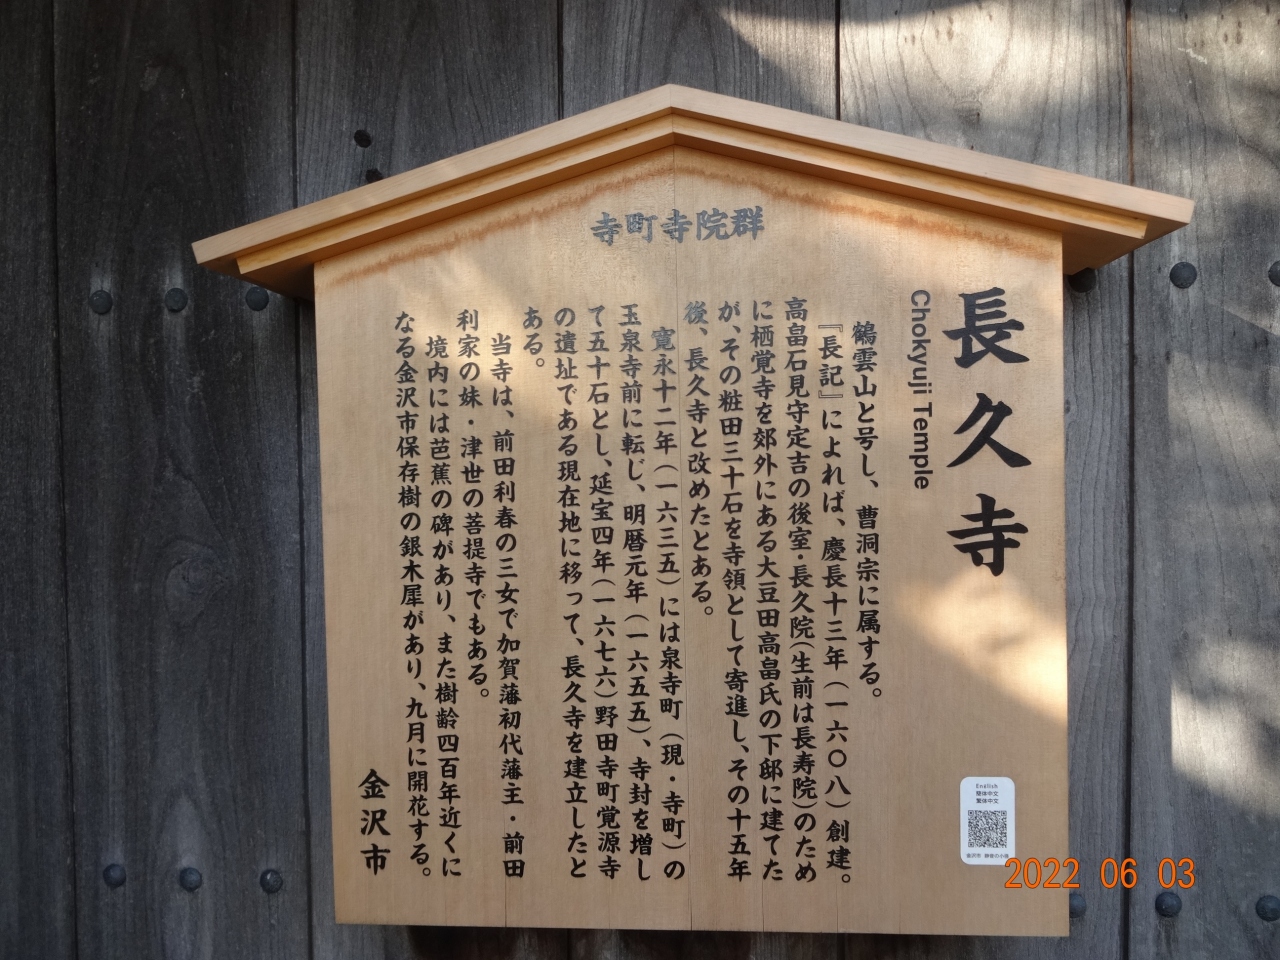 寺町寺院群
長久寺
Chokyuji Temple
鶴雲山と号し、曹洞宗に属する。
『長記』によれば、慶長十三年(一六〇八)創建。
高畠石見守定吉の後室・長久院(生前は長寿院)のため
に栖覚寺を郊外にある大豆田高畠氏の下邸に建てた
が、その粧田三十石を寺領として寄進し、その十五年
後、長久寺と改めたとある。
寛永十二年(一六三五)には泉寺町(現・寺町)の
玉泉寺前に転じ、明暦元年(一六五五)、寺封を増し
て五十石とし、延宝四年(一六七六)野田寺町覚源寺
の遺址である現在地に移って、長久寺を建立したと
ある。
当寺は、前田利春の三女で加賀藩初代藩主・前田
利家の妹・津世の菩提寺でもある。
境内には芭蕉の碑があり、また樹齢四百年近くに
なる金沢市保存樹の銀木犀があり、九月に開花する。
金沢市
English
簡体中文
繁体中文
2022 06 03